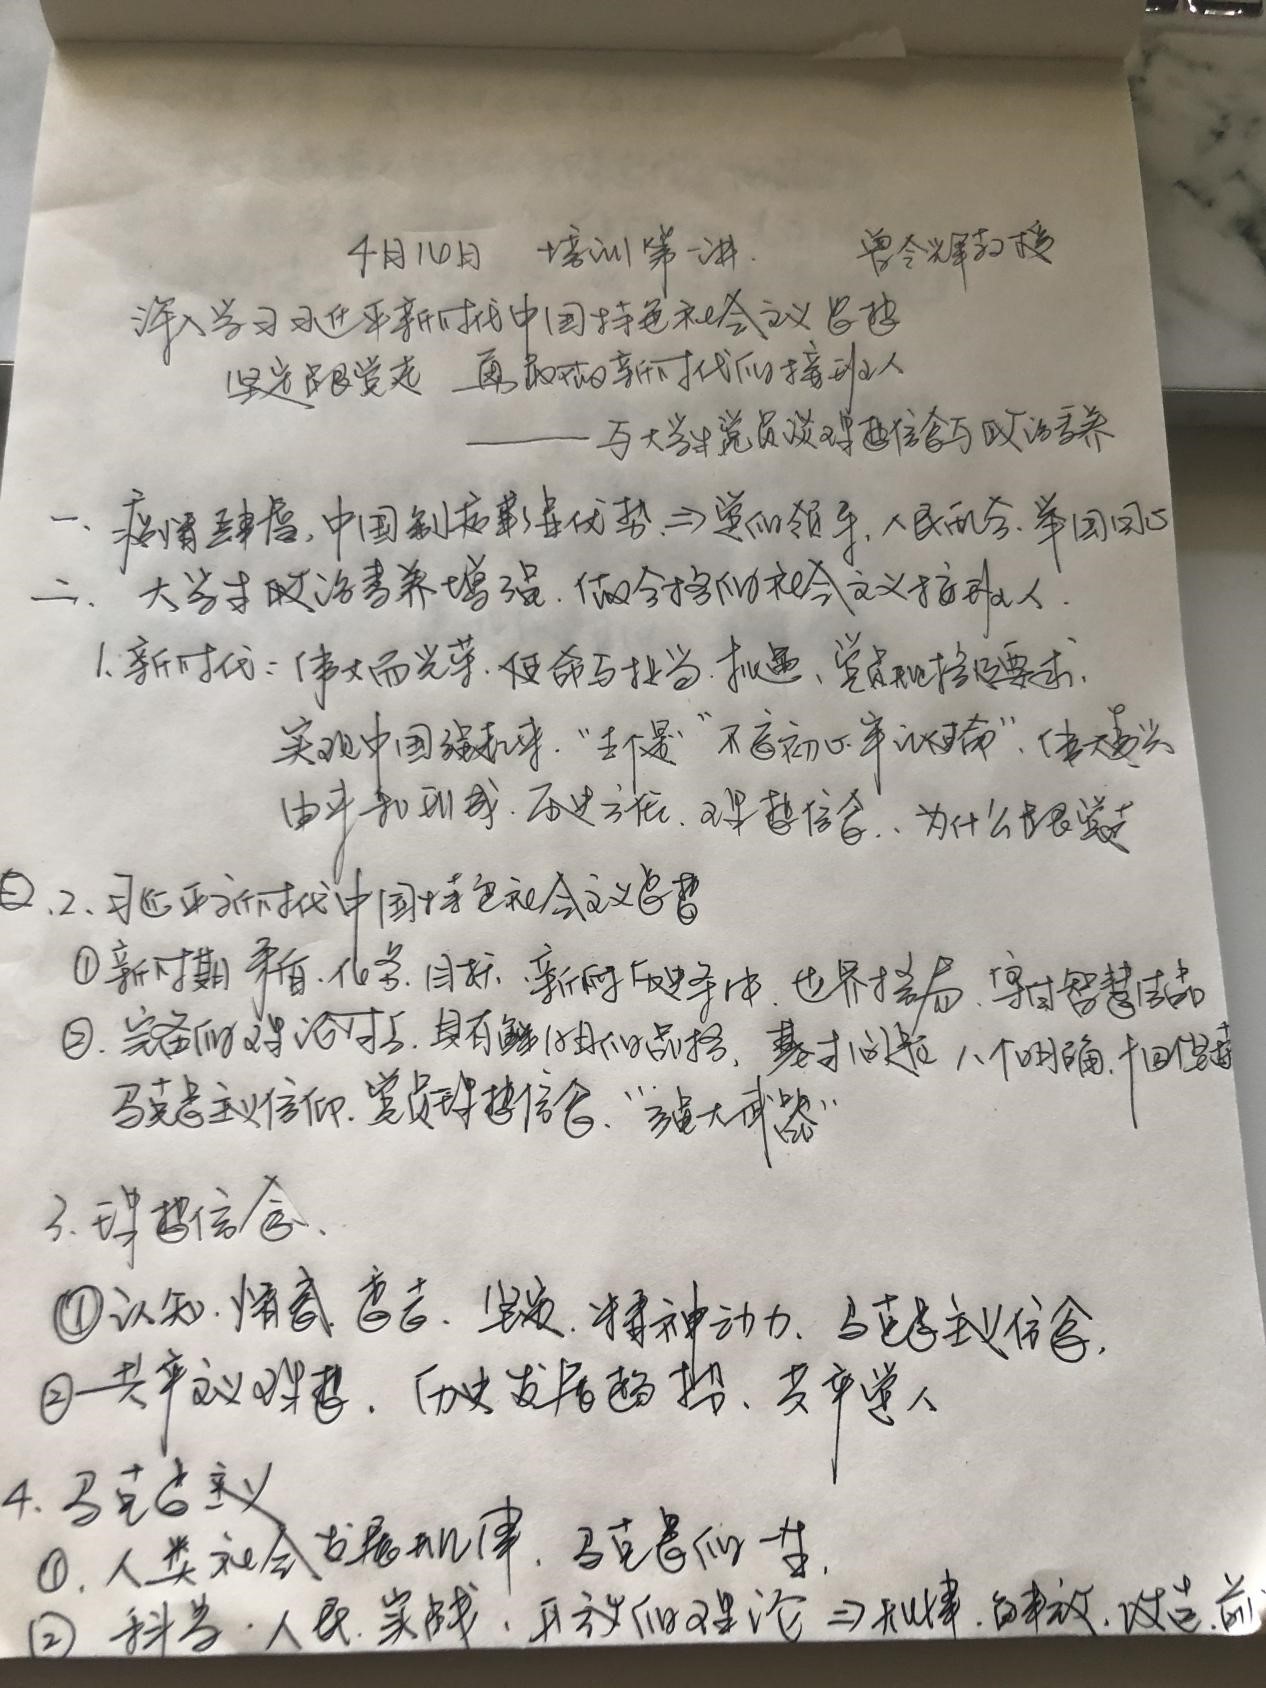 4月16日 培训第一讲. 曾令辉教授
深入学习习近平新时代中国特色社会主义思想
坚定跟党走 争做新时代的接班人
——与大学生党员谈理想信念与政治素养
一、疫情肆虐,中国制度彰显优势 ⇒ 党的领导,人民配合.举国同心
二、大学生政治素养增强.做合格的社会主义接班人.
1.新时代:伟大而光荣.使命与担当.机遇、党员规格要求、
实现中国强起来."五个是""不忘初心牢记使命".伟大复兴
由来和现域.历史方位、理想信念、为什么跟党走
2、习近平新时代中国特色社会主义思想
①新时期矛盾.任务.目标、新的历史条件、世界格局、智慧结晶
②.完备的理论体系.具有鲜明的品格,基本问题 八个明确.十四个坚持
马克思主义信仰.党员理想信念."强大武器"
3.理想信念、
①认知.情感.意志.坚定.精神动力、马克思主义信念,
②共产主义理想.历史发展趋势、共产党人
4.马克思主义
①.人类社会发展规律.马克思的一生,
② 科学.人民.实践.开放的理论 ⇒ 规律.解放.改造.前